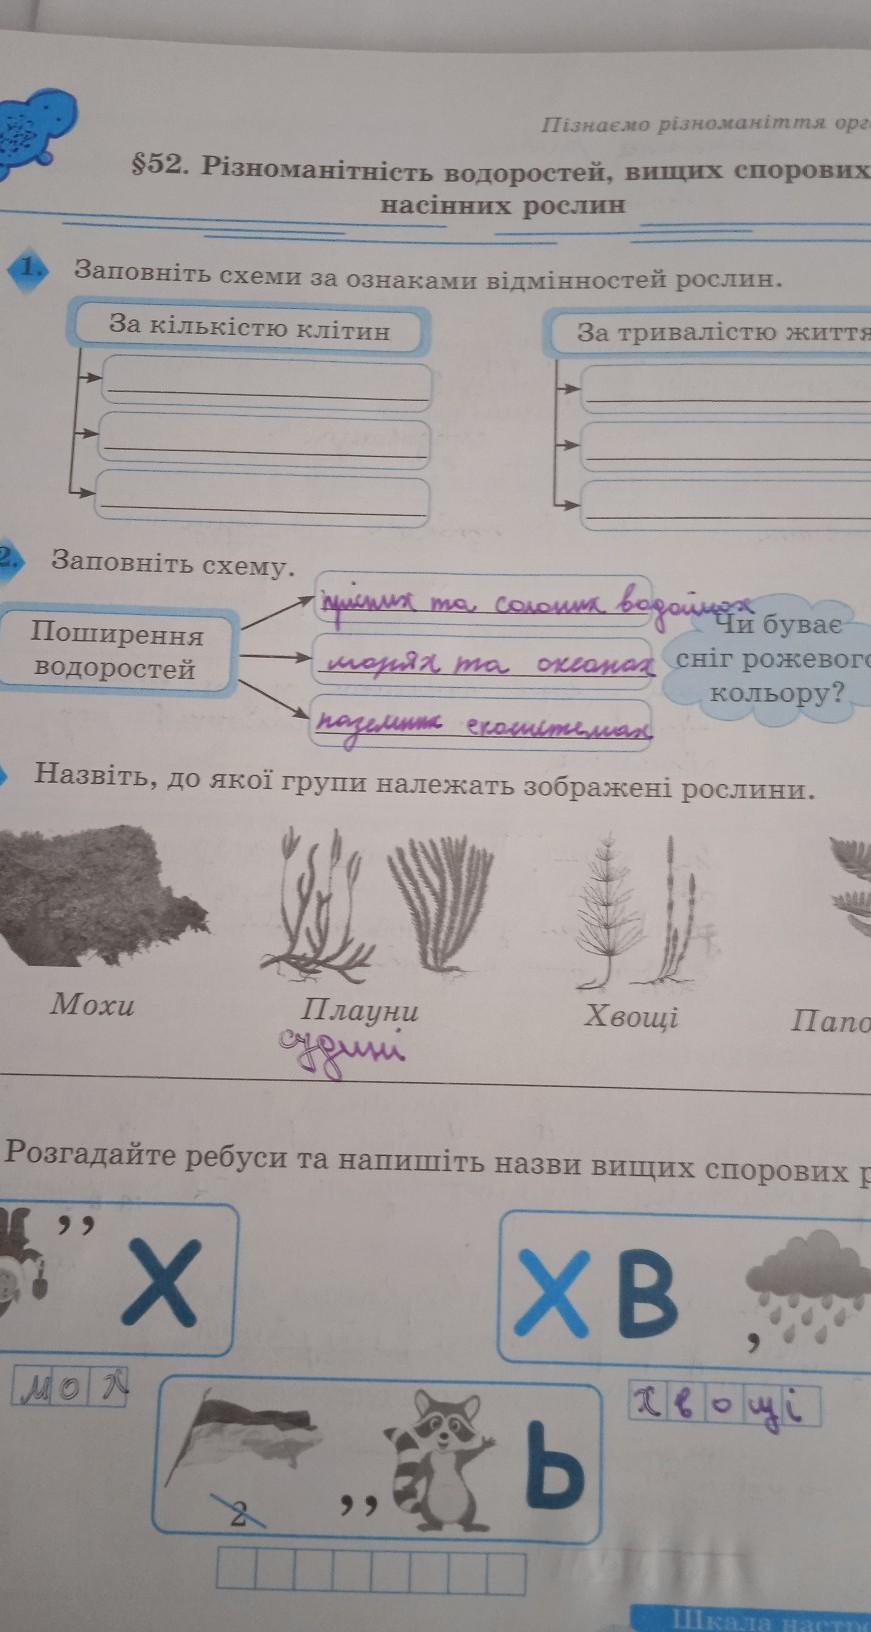 Пізнаємо різноманіття орг
§52. Різноманітність водоростей, вищих спорових
насінних рослин
1. Заповніть схеми за ознаками відмінностей рослин.
За кількістю клітин
За тривалістю життя
2. Заповніть схему.
Поширення
водоростей
прісних та солоних водоймах
морях та океанах
наземних екосистемах
Чи буває
сніг рожевого
кольору?
Назвіть, до якої групи належать зображені рослини.
Мохи Плауни Хвощі Папо
судині
Розгадайте ребуси та напишіть назви вищих спорових р
,, Х
ХВ ,
мох
хвощі
2 ,, Ь
Шкала настр